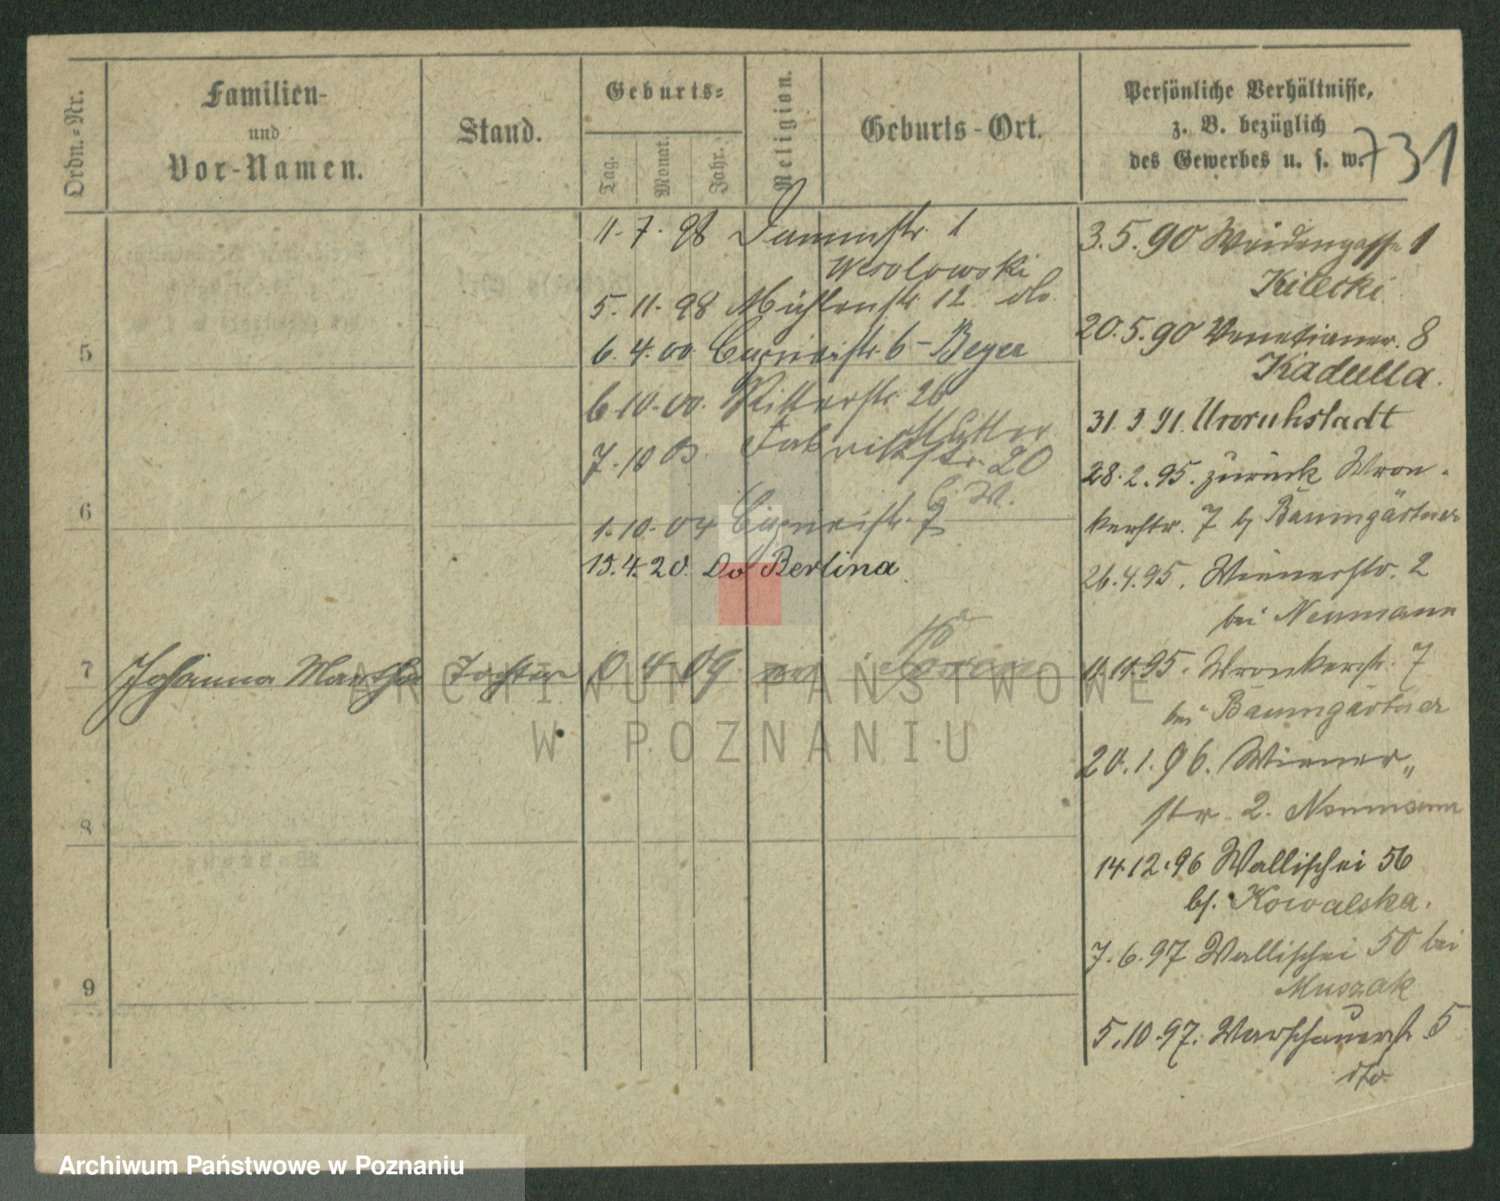 Ordn.-Nr.
Familien-
und
Vor-Namen.
Stand.
Geburts-
Tag.
Monat.
Jahr.
Religion.
Geburts-Ort.
Persönliche Verhältnisse,
z. B. bezüglich
des Gewerbes u. s. w.
731
11. 7. 98 Dammstr. 1
Wesolowski
5. 11. 98 Mühlenstr. 12 do
5
6. 4. 00 6 - Beyer
6. 10. 00. Ritterstr. 26
Mutter
7. 10 03. Fabrikstr. 20
6
1. 10. 04
15.4.20. Do Berlina
7 Johanna Martha Tochter 4 09 ev Posen
8
9
3. 5. 90 Weidengasse 1
Kilecki
20. 5. 90 Venetianer. 8
Kadulla.
31. 3 91. Unruhstadt
28. 2. 95. zurück Wron-
kerstr. 7 bj Baumgärtner
26. 4. 95. Wienerstr. 2
bei Neumann
11. 11. 95. Wronkerstr. 7
bei Baumgärtner
20. 1. 96. Wiener„
str. 2. Neumann
14. 12. 96 Wallischei 56
bj. Kowalska.
7. 6. 97 Wallischei 50 bei
Muszak
5. 10. 97. Warschauerstr. 5
do
ARCHIWUM PAŃSTWOWE
W POZNANIU
Archiwum Państwowe w Poznaniu